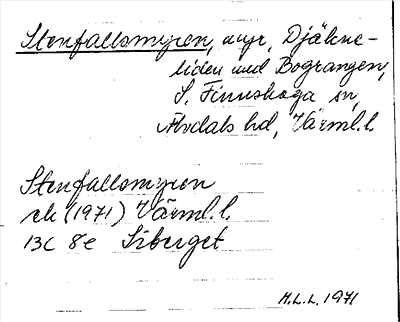 Stenfallsmyren, myr, Djäkne-
liden vid Bograngen,
S. Finnskoga sn,
Älvdals hd, Värml.l.
Stenfallsmyren
ek (1971) Värml.l.
13C 8e Siberget
M.L.L. 1971